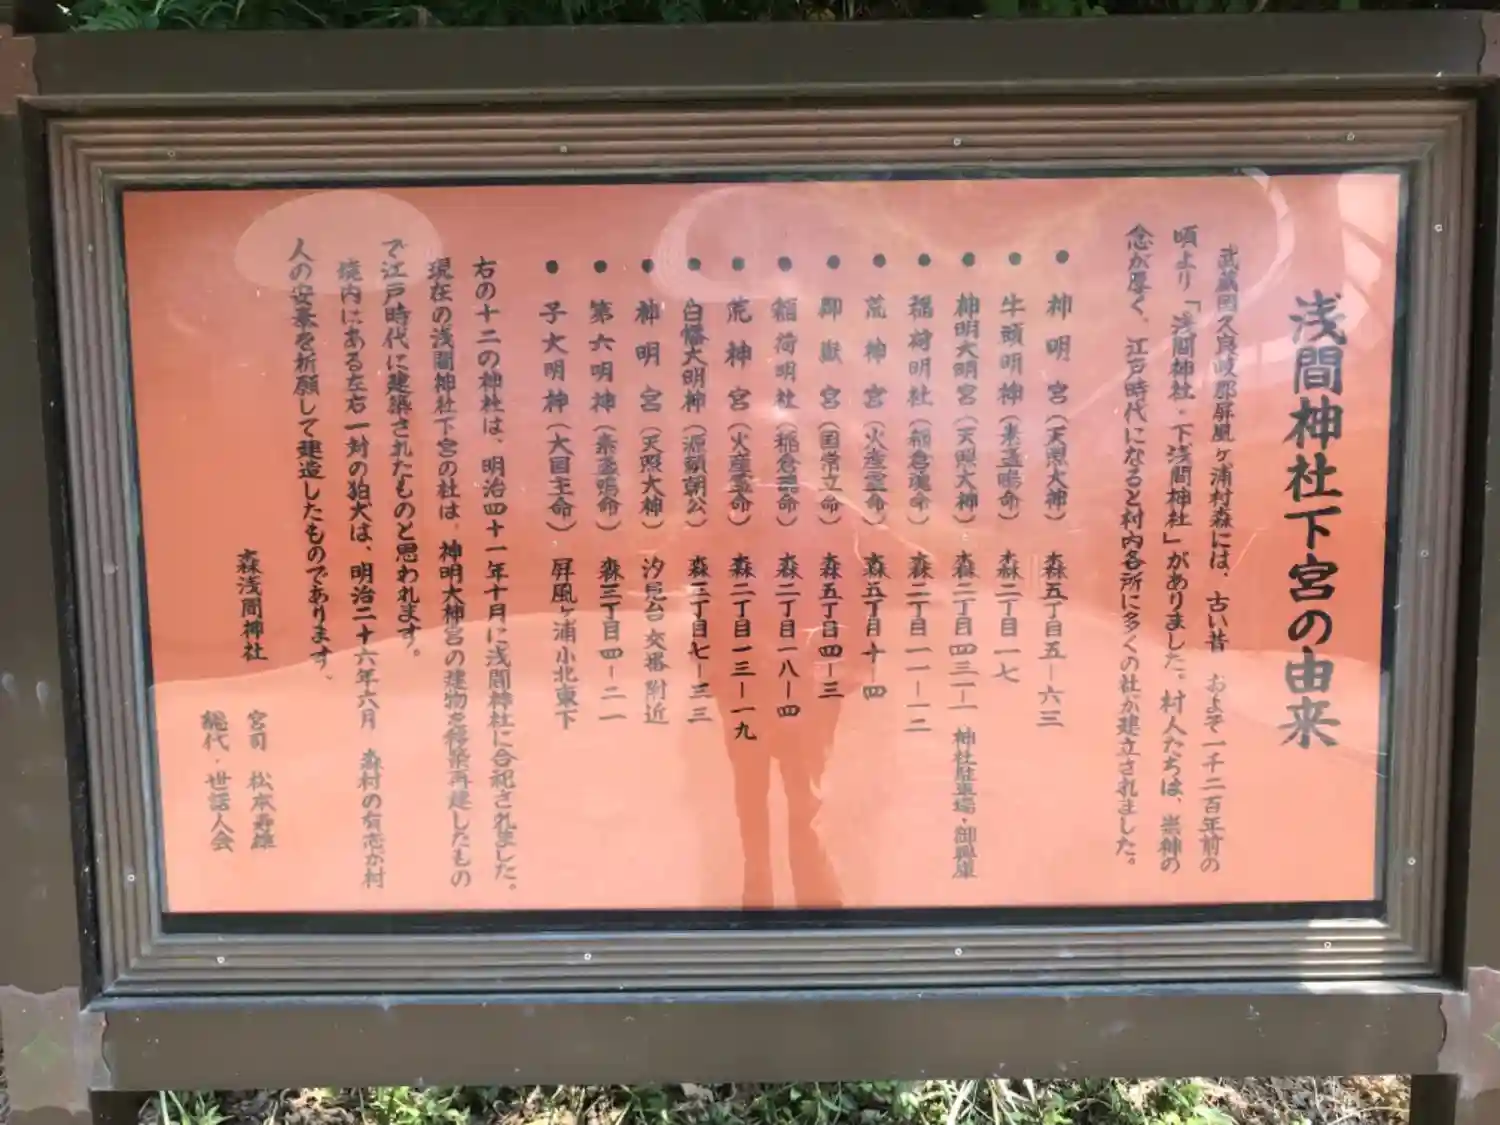 浅間神社下宮の由来
武蔵国久良岐郡屏風ヶ浦村森には、古い昔 およそ一千二百年前の
頃より「浅間神社・下浅間神社」がありました。村人たちは、崇神の
念が厚く、江戸時代になると村内各所に多くの社が建立されました。
● 神明宮(天照大神) 森五丁目五－六三
● 牛頭明神(素盞鳴命) 森二丁目一七
● 神明大明宮(天照大神) 森二丁目四三－一 神社駐車場・御輿庫
● 稲荷明社(稲倉魂命) 森二丁目一一－一二
● 荒神宮(火産霊命) 森五丁目十－四
● 御嶽宮(国常立命) 森五丁目四－三
● 稲荷明社(稲倉魂命) 森二丁目一八－四
● 荒神宮(火産霊命) 森二丁目一三－一九
● 白幡大明神(源頼朝公) 森三丁目七－三三
● 神明宮(天照大神) 汐見台交番附近
● 第六明神(素盞鳴命) 森三丁目四－二一
● 子大明神(大国主命) 屏風ヶ浦小北東下
右の十二の神社は、明治四十一年十月に浅間神社に合祀されました。
現在の浅間神社下宮の社は、神明大神宮の建物を移築再建したもの
で江戸時代に建築されたものと思われます。
境内にある左右一対の狛犬は、明治二十六年六月 森村の有志が村
人の安泰を祈願して建造したものであります。
森浅間神社
宮司 松本
総代・世話人会